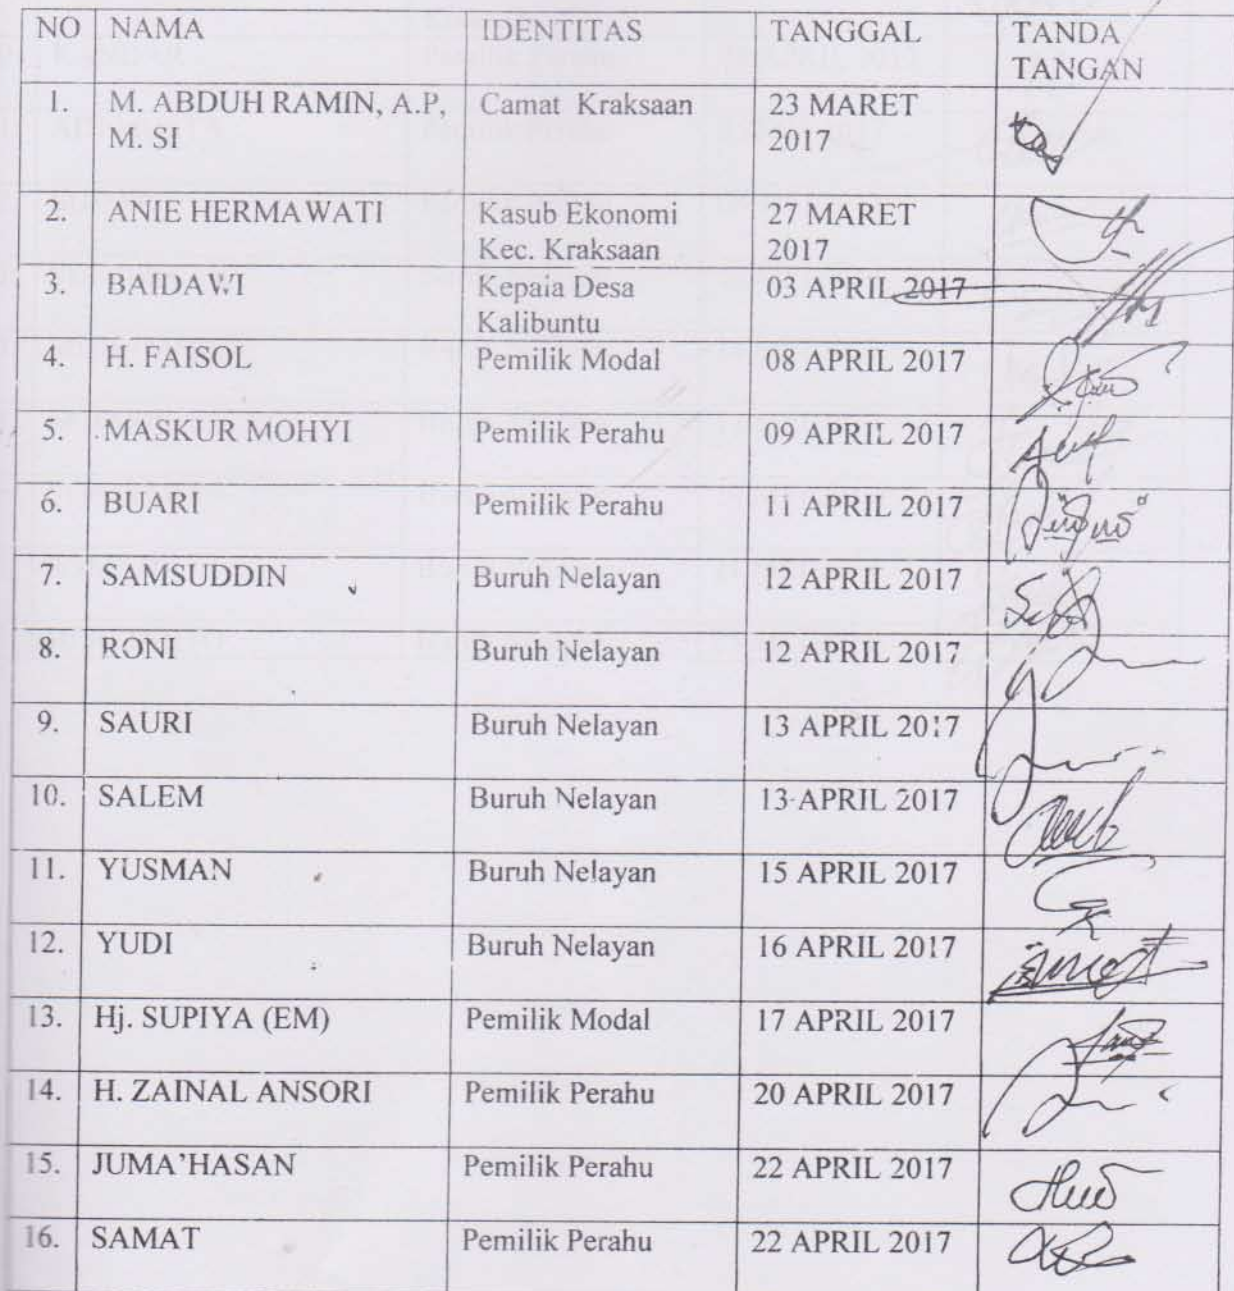 NO NAMA IDENTITAS TANGGAL TANDA
TANGAN
1. M. ABDUH RAMIN, A.P, Camat Kraksaan 23 MARET
M. SI 2017
2. ANIE HERMAWATI Kasub Ekonomi 27 MARET
Kec. Kraksaan 2017
3. BAIDAWI Kepala Desa 03 APRIL 2017
Kalibuntu
4. H. FAISOL Pemilik Modal 08 APRIL 2017
5. MASKUR MOHYI Pemilik Perahu 09 APRIL 2017
6. BUARI Pemilik Perahu 11 APRIL 2017
7. SAMSUDDIN Buruh Nelayan 12 APRIL 2017
8. RONI Buruh Nelayan 12 APRIL 2017
9. SAURI Buruh Nelayan 13 APRIL 2017
10. SALEM Buruh Nelayan 13 APRIL 2017
11. YUSMAN Buruh Nelayan 15 APRIL 2017
12. YUDI Buruh Nelayan 16 APRIL 2017
13. Hj. SUPIYA (EM) Pemilik Modal 17 APRIL 2017
14. H. ZAINAL ANSORI Pemilik Perahu 20 APRIL 2017
15. JUMA'HASAN Pemilik Perahu 22 APRIL 2017
16. SAMAT Pemilik Perahu 22 APRIL 2017